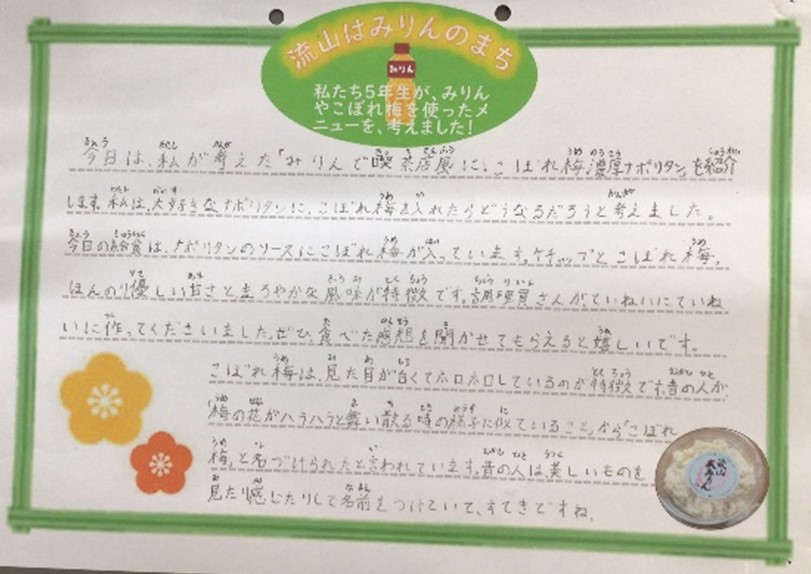 流山はみりんのまち
みりん
私たち5年生が、みりん
やこぼれ梅を使ったメ
ニューを、考えました!
今日は、私が考えた「みりんで喫茶店風に、こぼれ梅濃厚ナポリタン」を紹介
します。私は、大好きなナポリタンに、こぼれ梅を入れたらどうなるだろうと考えました。
今日の給食は、ナポリタンのソースにこぼれ梅が入っています。ケチャップとこぼれ梅。
ほんのり優しい甘さとまろやかな風味が特徴です。調理員さんがていねいにていね
いに作ってくださいました。ぜひ、食べた感想を聞かせてもらえると嬉しいです。
こぼれ梅は、見た目が白くてホロホロしているのが特徴です。昔の人が
梅の花がハラハラと舞い散る時の様子に似ていること。から「こぼれ
梅」と名づけられたと言われています。昔の人は、美しいものを
見たり感じたりして名前をつけていて、すてきですね。
流山